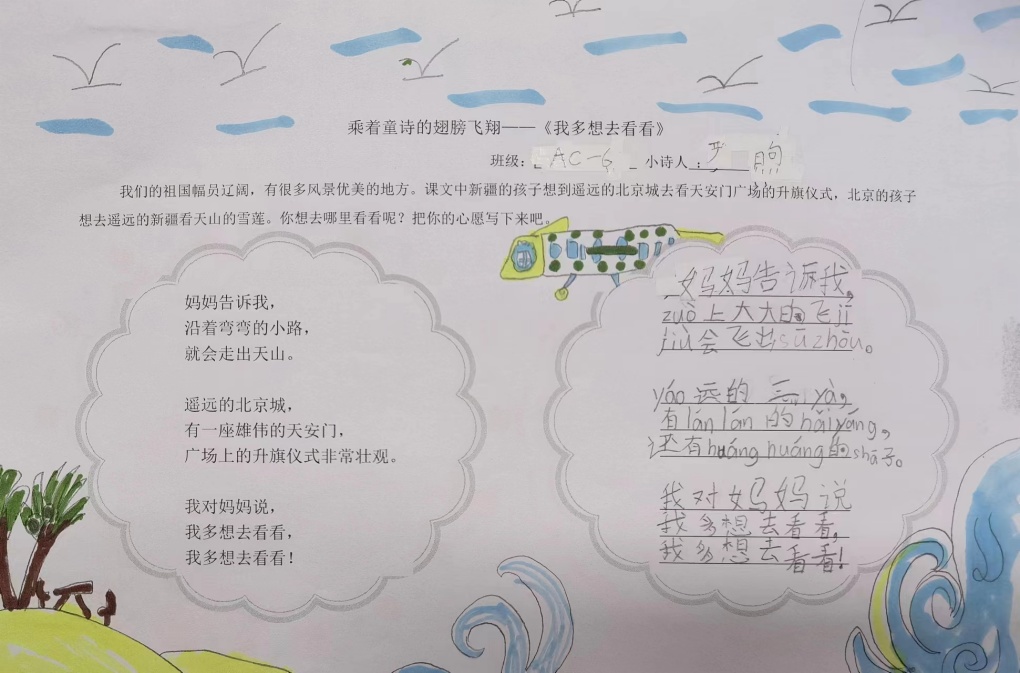 乘着童诗的翅膀飞翔——《我多想去看看》
班级：AC-6 小诗人：罗 煦
我们的祖国幅员辽阔，有很多风景优美的地方。课文中新疆的孩子想到遥远的北京城去看天安门广场的升旗仪式，北京的孩子
想去遥远的新疆看天山的雪莲。你想去哪里看看呢？把你的心愿写下来吧。
妈妈告诉我，
沿着弯弯的小路，
就会走出天山。
遥远的北京城，
有一座雄伟的天安门，
广场上的升旗仪式非常壮观。
我对妈妈说，
我多想去看看，
我多想去看看！
妈妈告诉我，
zuò上大大的飞jī
jiù会飞出sūzhōu。
yáo远的三yà，
有lánlán的hǎiyáng，
还有huánghuáng的shā子。
我对妈妈说
我多想去看看，
我多想去看看！